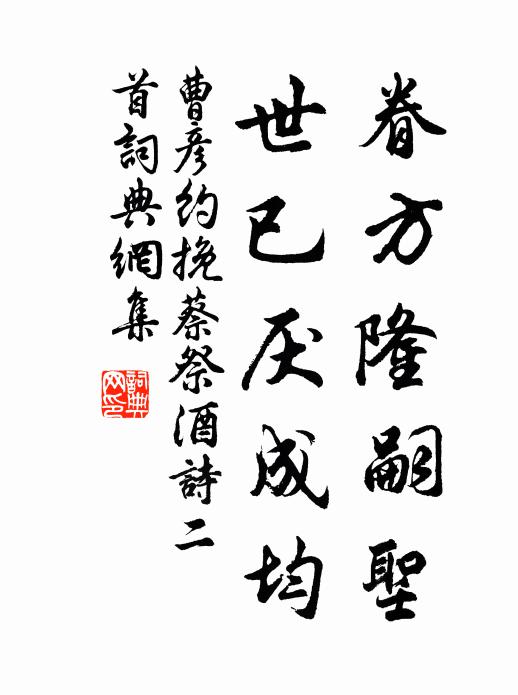 眷方隆嗣聖
世已厌成均
曹彦约挽蔡祭酒詩二
首詞典網集
詞典网印